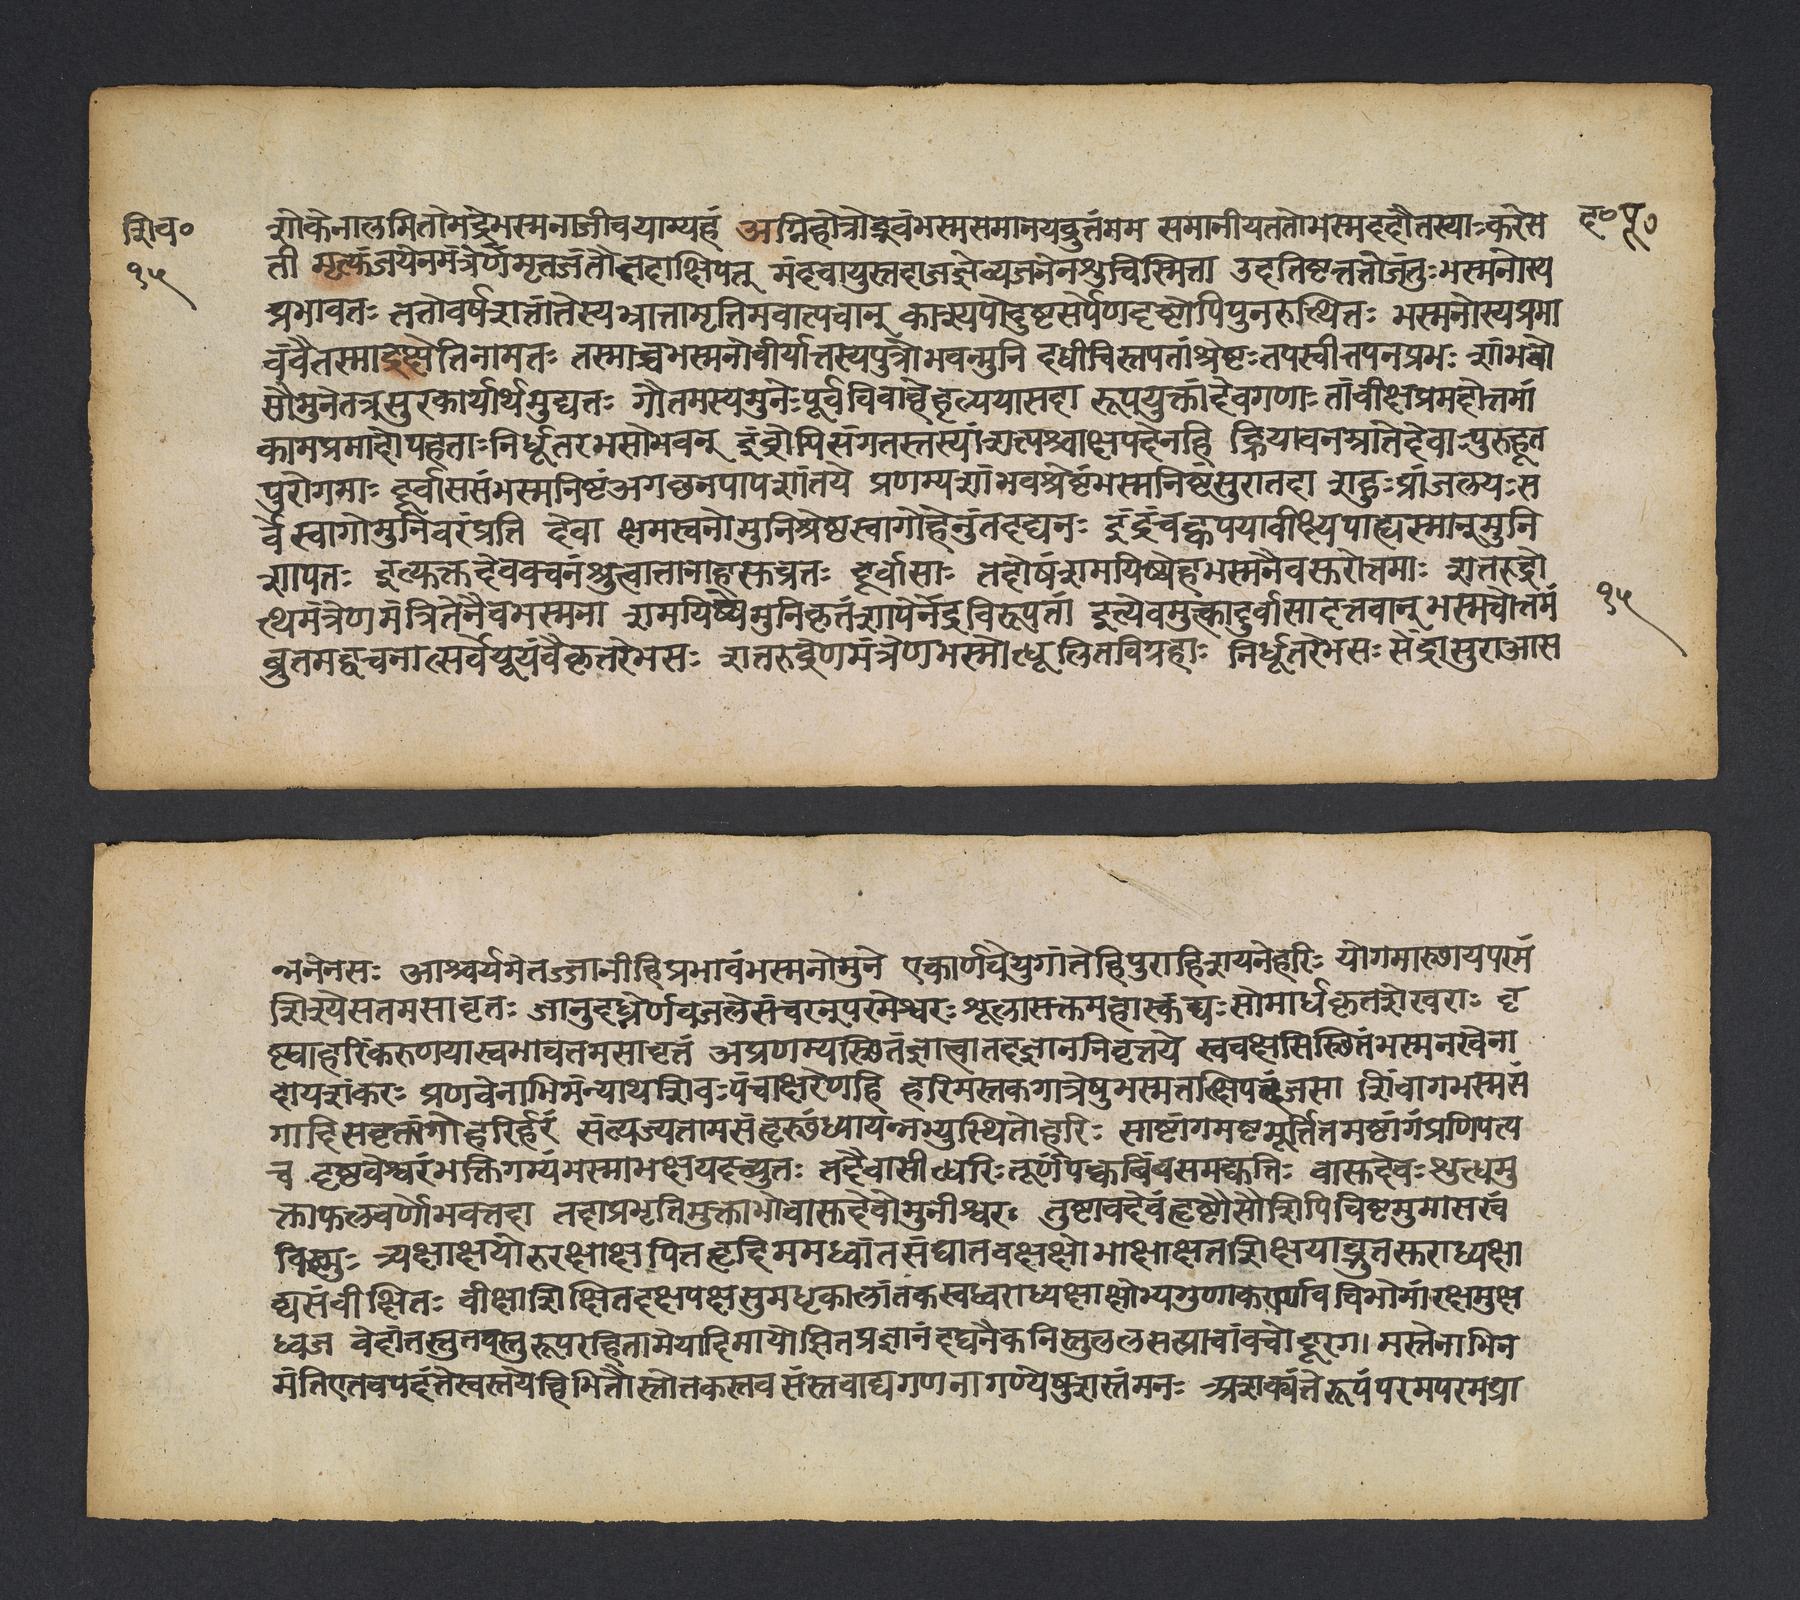 शिव॰
१५
ह॰ पू७
शोकेनालमितोभद्रेभस्मनाजीवयाम्यहं अग्निहोत्रोद्भवंभस्मसमानयद्रुतंमम समानीयततोभस्मददौतस्याःकरेस
ती मृत्युंजयेनमंत्रेणमृतजंतौतदाक्षिपेत् मंदवायुस्तदाजज्ञेव्यजनेनशुचिस्मिता उदतिष्टत्ततोजंतुःभस्मनोस्य
प्रभावतः ततोवर्षशतांतेस्यभ्रातामृतिमवाप्तवान् काश्यपोदुष्टसर्पेणदष्टोपिपुनरुत्थितः भस्मनोस्यप्रभा
वंवैतस्माद् नामतः तस्माच्चभस्मनोवीर्यात्तस्यपुत्रोभवन्मुनि दधीचिस्तपतांश्रेष्टःतपस्वीतपनप्रभः शांभवो
सौमुनेतत्रसुरकार्यार्थमुद्यतः गौतमस्यमुनेःपूर्वंविवाहे रूपयुक्तांदेवगणाःतांवीक्ष्यप्रमदोत्तमां
कामप्रमादोपहताःनिर्धूतरभसोभवन् इंद्रोपिसंगतस्तस्यां देवाःपुरुहूत
पुरोगमाः दूर्वाससंभस्मनिष्टंअगच्छनपापशांतये प्रणम्यशांभवश्रेष्टंभस्मनिष्टंसुरातदा शाहुःप्रांजलयःस
र्वे स्वागोमुनिवरंप्रति देवा क्षमस्वनोमुनिश्रेष्ठस्वागो इंद्रंचकृपयावीक्ष्यपाह्यस्मान्मुनि
शापतः इत्युक्तदेववचनंश्रुत्वातानाहसुव्रतः दूर्वासाः तद्दोषंशमयिष्येहंभस्मनैवसुरोत्तमाः शतरुद्रो
त्थमंत्रेणमंत्रितेनैवभस्मना शमयिष्येमुनिकृतंशापेनेंद्रविरूपतां इत्येवमुक्त्वादुर्वासादत्तवान्भस्मचोत्तमं
१५
द्रुतमद्वचनात्सर्वेयूयंवैकृतरेभसः शतरुद्रेणमंत्रेणभस्मोद्धूलितविग्रहाः निर्धूतरेभसःसेंद्रासुराआस
न्ननेनसः आश्चर्यमेतज्जानीहिप्रभावंभस्मनोमुने एकार्णवेयुगांतेहिपुराहिशयनेहरिः योगमास्थायपरमं
शिश्येसतमसावृतः जानुदघ्नेर्णवजलेसंचरन्परमेश्वरःशूलासक्तमहास्कंधःसोमार्धकृतशेखराः दृ
ष्ट्वाहरिंकरुणयास्वभावतमसावृतं अप्रणम्यस्थितंज्ञात्वातदज्ञाननिवृत्तये स्ववक्षसिस्थितंभस्मनखेना
दायशंकरः प्रणवेनाभिमंन्याथशिवःपंचाक्षरेणहि हरिमस्तकगात्रेषुभस्म शिवांगभस्मसं
गाद्दिसवृतांगोहरिर्हरं संत्यज्यतामसंहृत्स्थंध्यायंन्नभ्युस्थितोहरिः साष्टांगमष्टमूर्तिंतमष्टांगंप्रणिपत्य
च दृष्ट्वेश्वरंभक्तिगम्यंभस्माभक्षयदच्युतः तदैवासीद्धरिःतूर्णंपक्वबिंबसमद्युतिः वासुदेवःशुद्धमु
क्ताफलवर्णोभवत्तदा तदाप्रभृतिमुक्ताभोवासुदेवोमुनीश्वर तुष्टावदेवंहृष्टोसौशिपिविष्टमुमासखं
विष्णुः त्र्यक्षाक्षयोरुरक्षोक्षपितहृदिममध्वांतसंघातवक्षक्षोभाक्षोक्षतशिक्षयाच्युतसुराध्यक्षा
द्यसंवीक्षितः वीक्षाशिक्षितदक्षपक्षसुमधृकालांतकस्वध्वराध्यक्षाक्षोभ्यगुणाकरार्णवविभोमांरक्षमुक्ष
ध्वज वेदांतस्तुतवस्तुरूपरहितामेयाहिमायोसितप्रज्ञानंदघनैकनिस्तुललसत्
मंति अशक्यंतेरूपंपरमपरमप्रा